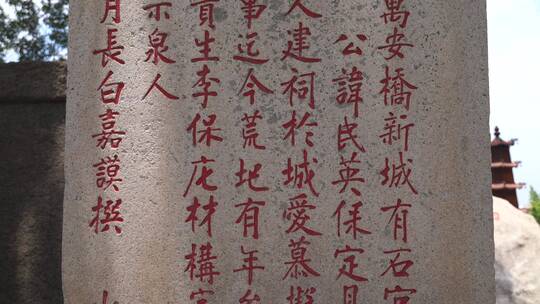 萬安橋新城有石室
公諱民英保定具
人建祠於城愛慕擬
事迄今荒圯有年
貢生李保庇材構
示泉人
月長白嘉謨撰